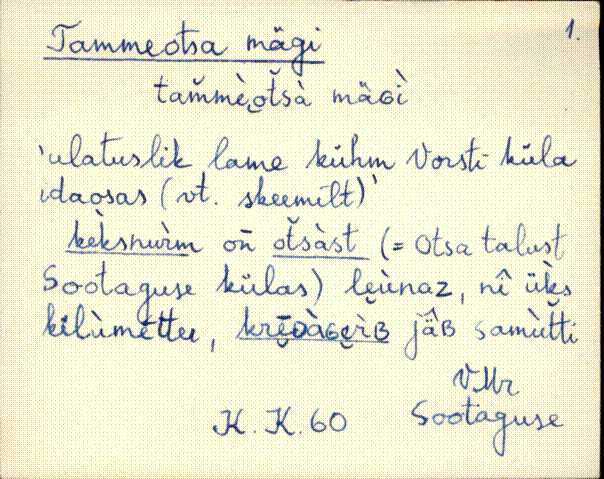 1.
Tammeotsa mägi
tam̆mè̬ot̆sà mäɢì
'ulatuslik lame kühm Vorsti küla
idaosas (vt. skeemilt)'
kèksnùrm on̄ ot̆sàst (= Otsa talust
Sootaguse külas) le̬ùnaz, nî üks
kilùmet̆ter, krē̬ᴅàɢe̬rìʙ jä̂ʙ samùt̆ti
V. Mr
K. K. 60 Sootaguse